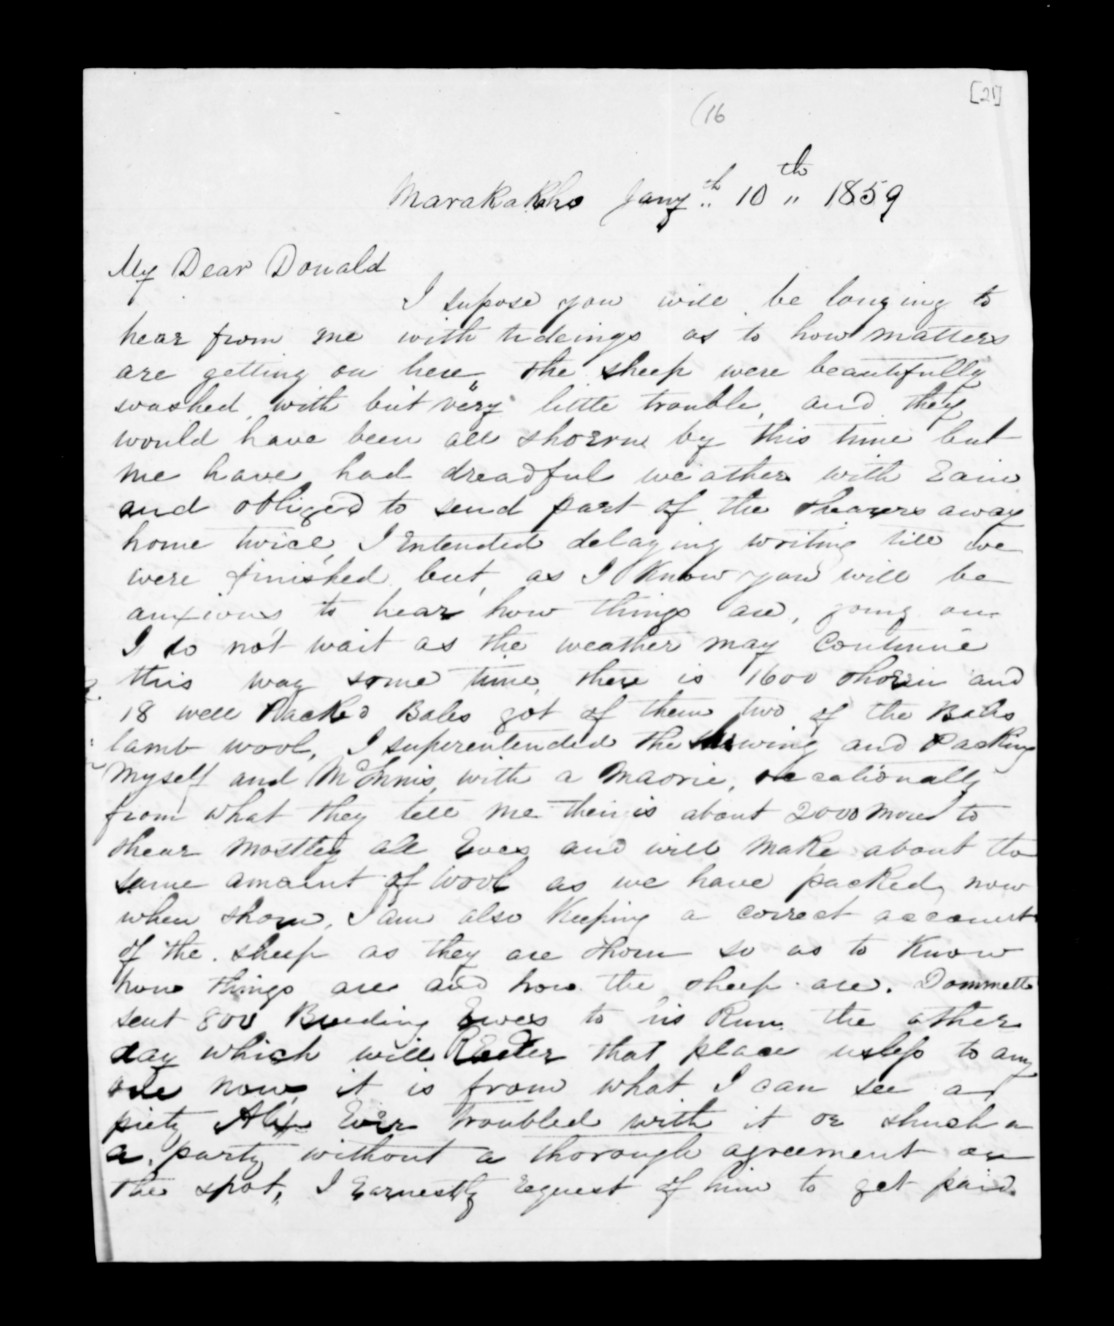 [21]
(16
Marakakaho Jany.th 10th 1859
My Dear Donald
I supose you will be longing to
hear from me with tideings as to how matters
are getting on here, the sheep were beautifully
washed with but very little trouble, and they
would have been all shorn by this time but
we have had dreadful weather with Rain
and obliged to send part of the shearers away
home twice, I Entended delaying writing till we
were finished but, as I know you will be
anxious to hear how things are, going on
I do not wait as the weather may continue
this way some time, there is 1600 shorn and
18 well Packed Bales got of them two of the Bales
lamb wool, I superentended the and Packing
myself and McInnis, with a Maorie, occationally
from what they tell me their is about 2000 more to
shear mostley all Ewes and will make about the
same amount of wool as we have packed, now
when shorn, I am also keeping a correct account
of the sheep as they are shorn so as to know
how things are and how the sheep are. Dommett
sent 800 Breeding Ewes to his Run the other
day which will that place usless to any
one now, it is from what I can see a
piety Alex Ever troubled with it or shuch a
a party without a thorough agreement on
the spot, I Earnestly request of him to get paid